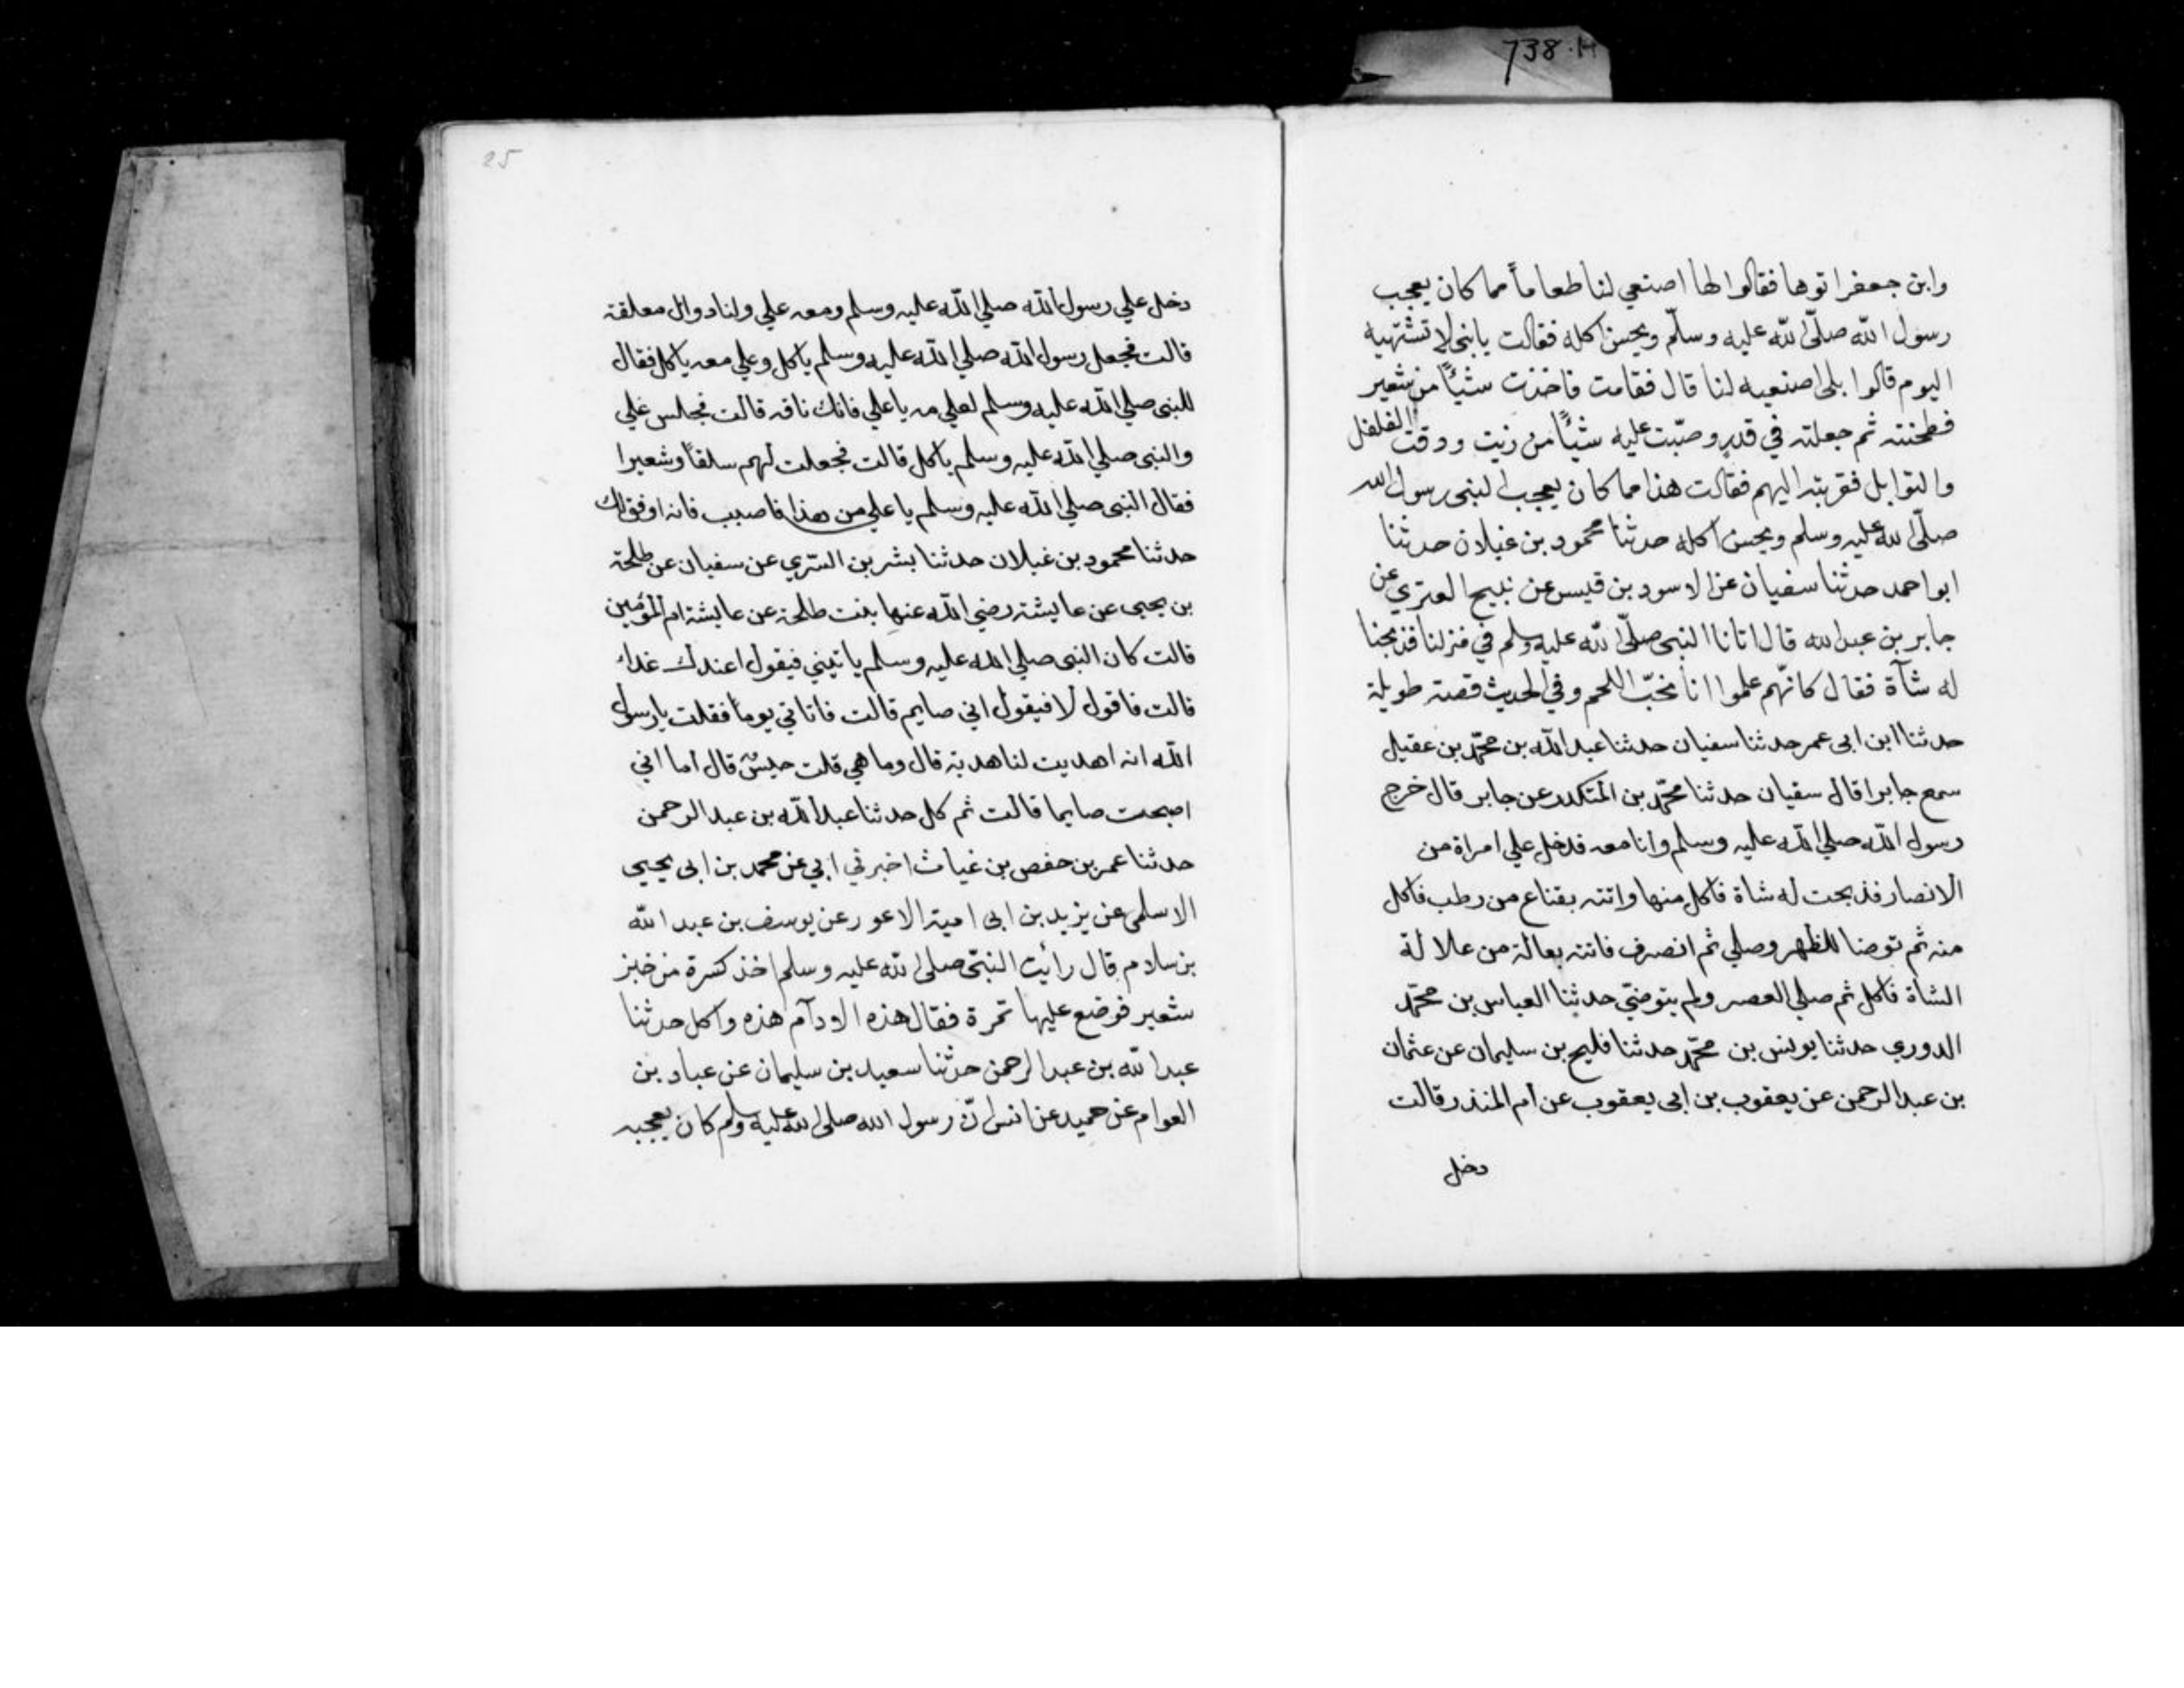 738.H
وابن جعفر اتوها فقالوا لها اصنعي لنا طعاماً مما كان يعجب
رسول الله صلّى الله عليه وسلّم ويحسن اكله فقالت يا بني لا تشتهيه
اليوم قالوا بلى اصنعيه لنا قال فقامت فاخذت شيئاً من شعير
فطحنته ثم جعلته في قدر وصبّت عليه شيئاً من زيت ودقت الفلفل
والتوابل فقربته اليهم فقالت هذا مما كان يعجب النبي رسول الله
صلّى الله عليه وسلم ويحسن اكله حدثنا محمود بن غيلان حدثنا
ابو احمد حدثنا سفيان عن الاسود بن قيس عن نبيح العتري عن
جابر بن عبد الله قال اتانا النبي صلّى الله عليه وسلم في منزلنا فذبحنا
له شآة فقال كانّهم علموا انا نحبّ اللحم وفي الحديث قصة طويلة
حدثنا ابن ابي عمر حدثنا سفيان حدثنا عبد الله بن محمّد بن عقيل
سمع جابرا قال سفيان حدثنا محمّد بن المنكدر عن جابر قال خرج
رسول الله صلي الله عليه وسلم وانا معه فدخل علي امراة من
الانصار فذبحت له شاة فاكل منها واتته بقناع من رطب فاكل
منه ثم توضا للظهر وصلي ثم انصرف فاتته بعالة من علالة
الشاة فاكل ثم صلي العصر ولم يتوضئ حدثنا العباس بن محمّد
الدوري حدثنا يونس بن محمّد حدثنا فليح بن سليمان عن عثمان
بن عبد الرحمن عن يعقوب بن ابي يعقوب عن ام المنذر قالت
دخل
25
دخل علي رسول الله صلي الله عليه وسلم ومعه علي ولنا دوال معلقة
قالت فجعل رسول الله صلي الله عليه وسلم ياكل وعلي معه ياكل فقال
للنبي صلي الله عليه وسلم لعلي مه يا علي فانك ناقه قالت فجلس علي
والنبي صلي الله عليه وسلم ياكل قالت فجعلت لهم سلقاً وشعيرا
فقال النبي صلي الله عليه وسلم يا علي من هذا فاصبب فانه اوفق لك
حدثنا محمود بن غيلان حدثنا بشر بن السّري عن سفيان عن طلحة
بن يحيى عن عايشة رضي الله عنها بنت طلحة عن عايشة ام المؤمنين
قالت كان النبي صلي الله عليه وسلم ياتيني فيقول اعندك غداء
قالت فاقول لا فيقول اني صايم قالت فاتاني يوماً فقلت يا رسول
الله انه اهديت لنا هدية قال وما هي قلت حيسٌ قال اما اني
اصبحت صايما قالت ثم كل حدثنا عبد الله بن عبد الرحمن
حدثنا عمر بن حفص بن غياث اخبرني ابي عن محمد بن ابي يحيي
الاسلمي عن يزيد بن ابي امية الاعور عن يوسف بن عبد الله
بن سلام قال رأيت النبيّ صلى الله عليه وسلم اخذ كسرة من خبز
شعير فوضع عليها تمرة فقال هذه الادآم هذه واكل حدثنا
عبد الله بن عبد الرحمن حدثنا سعيد بن سليمان عن عباد بن
العوام عن حميد عن انس انّ رسول الله صلى الله عليه وسلم كان يعجبه